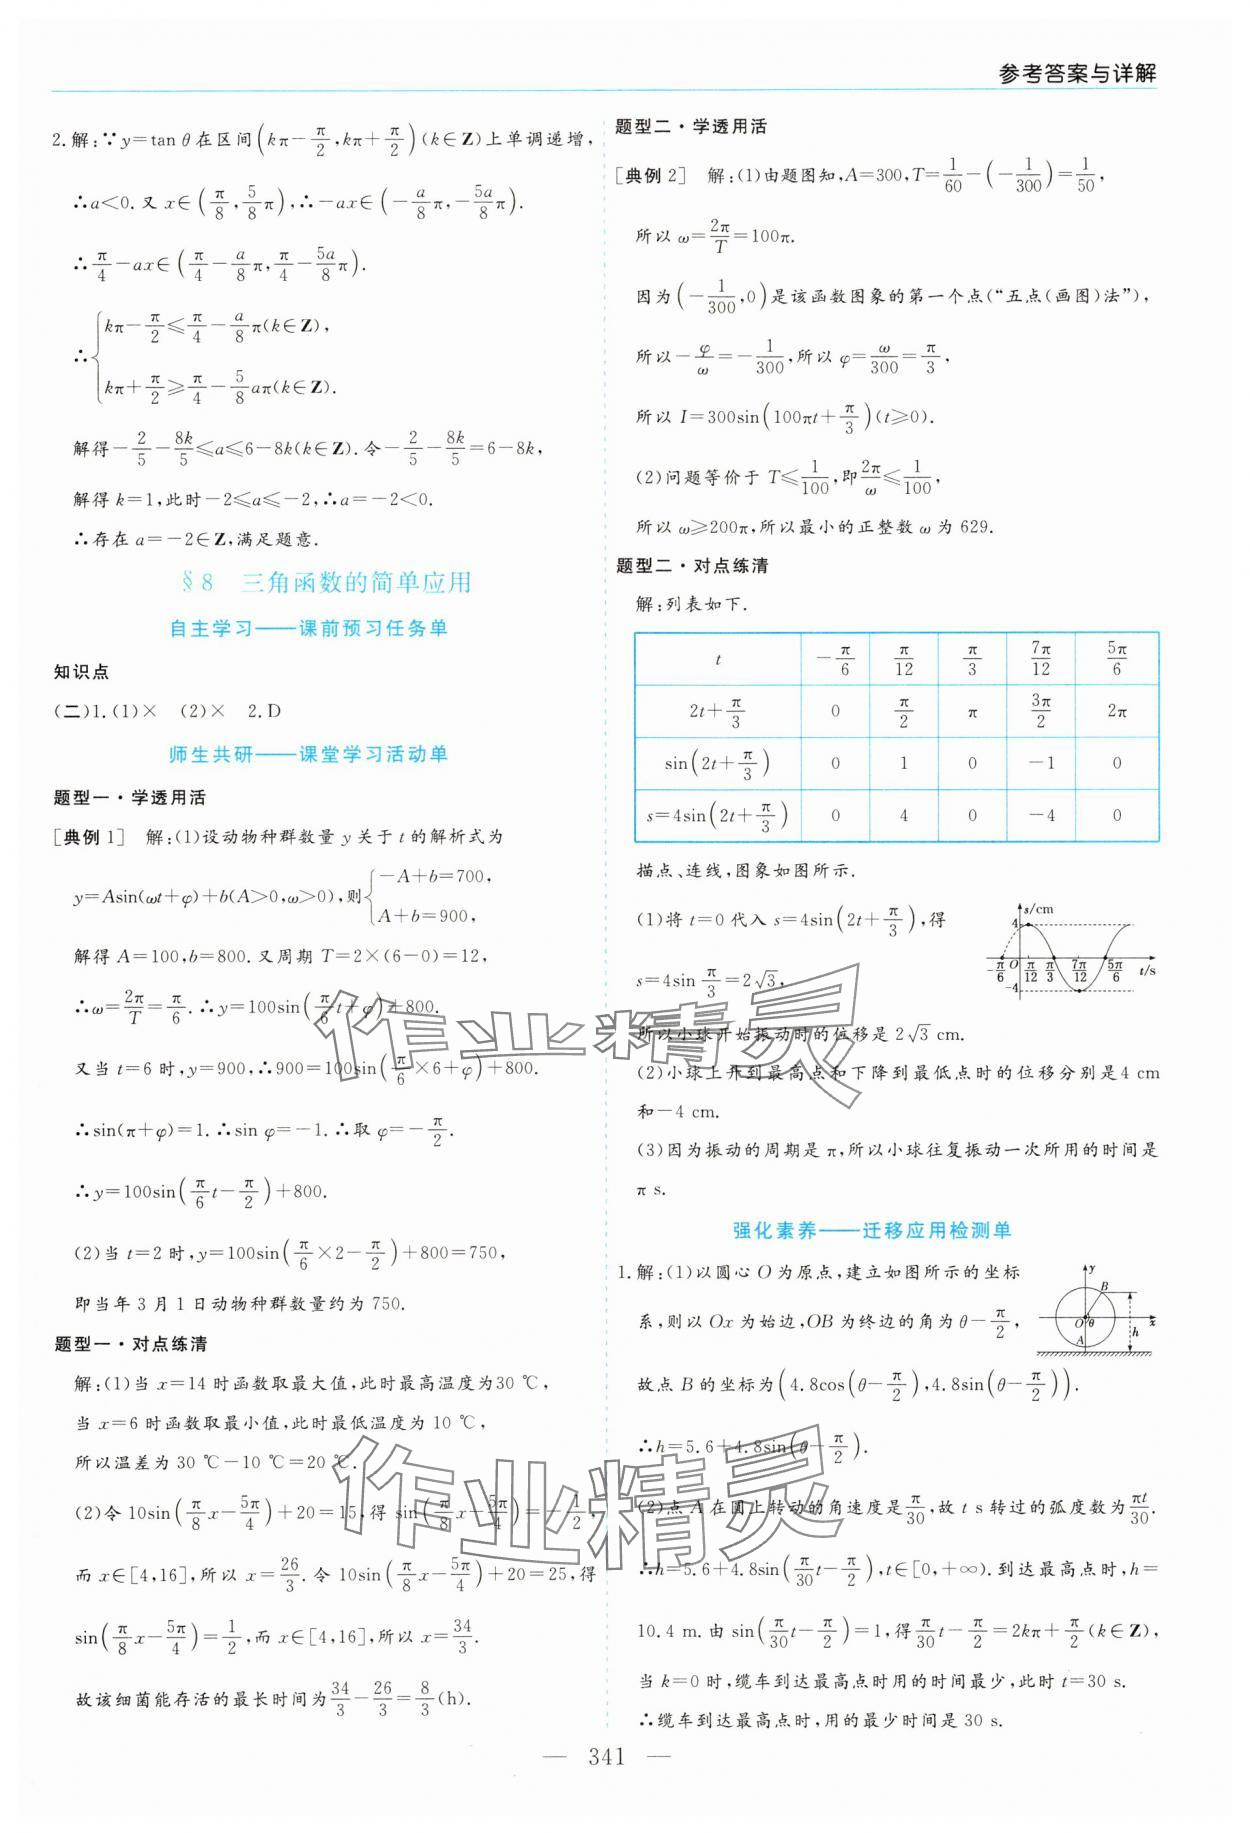 参考答案与详解
2.解:∵y=tan θ在区间(kπ-π/2,kπ+π/2)(k∈Z)上单调递增,
∴a<0.又 x∈(π/8,5/8π),∴-ax∈(-a/8π,-5a/8π).
∴π/4-ax∈(π/4-a/8π,π/4-5a/8π).
∴{kπ-π/2≤π/4-a/8π(k∈Z),
kπ+π/2≥π/4-5/8aπ(k∈Z).
解得-2/5-8k/5≤a≤6-8k(k∈Z).令-2/5-8k/5=6-8k,
解得k=1,此时-2≤a≤-2,∴a=-2<0.
∴存在 a=-2∈Z,满足题意.
§8 三角函数的简单应用
自主学习——课前预习任务单
知识点
(二)1.(1)× (2)× 2.D
师生共研——课堂学习活动单
题型一·学透用活
[典例1] 解:(1)设动物种群数量 y 关于 t 的解析式为
y=Asin(ωt+φ)+b(A>0,ω>0),则{-A+b=700,
A+b=900,
解得 A=100,b=800.又周期 T=2×(6-0)=12,
∴ω=2π/T=π/6.∴y=100sin(π/6t+φ)+800.
又当 t=6 时,y=900,∴900=100sin(π/6×6+φ)+800.
∴sin(π+φ)=1.∴sin φ=-1.∴取 φ=-π/2.
∴y=100sin(π/6t-π/2)+800.
(2)当 t=2 时,y=100sin(π/6×2-π/2)+800=750,
即当年 3 月 1 日动物种群数量约为 750.
题型一·对点练清
解:(1)当 x=14 时函数取最大值,此时最高温度为30 ℃,
当 x=6 时函数取最小值,此时最低温度为 10 ℃,
所以温差为 30 ℃-10 ℃=20 ℃.
(2)令 10sin(π/8x-5π/4)+20=15,得 sin(π/8x-5π/4)=-1/2,
而 x∈[4,16],所以 x=26/3.令 10sin(π/8x-5π/4)+20=25,得
sin(π/8x-5π/4)=1/2,而 x∈[4,16],所以 x=34/3.
故该细菌能存活的最长时间为34/3-26/3=8/3(h).
题型二·学透用活
[典例2] 解:(1)由题图知,A=300,T=1/60-(-1/300)=1/50,
所以 ω=2π/T=100π.
因为(-1/300,0)是该函数图象的第一个点(“五点(画图)法”),
所以-φ/ω=-1/300,所以 φ=ω/300=π/3,
所以 I=300sin(100πt+π/3)(t≥0).
(2)问题等价于 T≤1/100,即2π/ω≤1/100,
所以 ω≥200π,所以最小的正整数 ω 为 629.
题型二·对点练清
解:列表如下.
t -π/6 π/12 π/3 7π/12 5π/6
2t+π/3 0 π/2 π 3π/2 2π
sin(2t+π/3) 0 1 0 -1 0
s=4sin(2t+π/3) 0 4 0 -4 0
描点、连线,图象如图所示.
(1)将 t=0 代入 s=4sin(2t+π/3),得
s=4sin π/3=2√3,
s/cm
4
-π/6 O π/12 π/3 7π/12 5π/6 t/s
-4
所以小球开始振动时的位移是 2√3 cm.
(2)小球上升到最高点和下降到最低点时的位移分别是4 cm
和-4 cm.
(3)因为振动的周期是 π,所以小球往复振动一次所用的时间是
π s.
强化素养——迁移应用检测单
1.解:(1)以圆心 O 为原点,建立如图所示的坐标
系,则以 Ox 为始边,OB 为终边的角为θ-π/2,
y
B
O θ x
A h
故点 B 的坐标为(4.8cos(θ-π/2),4.8sin(θ-π/2)).
∴h=5.6+4.8sin(θ-π/2).
(2)点 A 在圆上转动的角速度是π/30,故 t s 转过的弧度数为πt/30.
∴h=5.6+4.8sin(π/30t-π/2),t∈[0,+∞).到达最高点时,h=
10.4 m.由 sin(π/30t-π/2)=1,得π/30t-π/2=2kπ+π/2(k∈Z),
当 k=0 时,缆车到达最高点时用的时间最少,此时 t=30 s.
∴缆车到达最高点时,用的最少时间是 30 s.
作业精灵
作业精灵
— 341 —